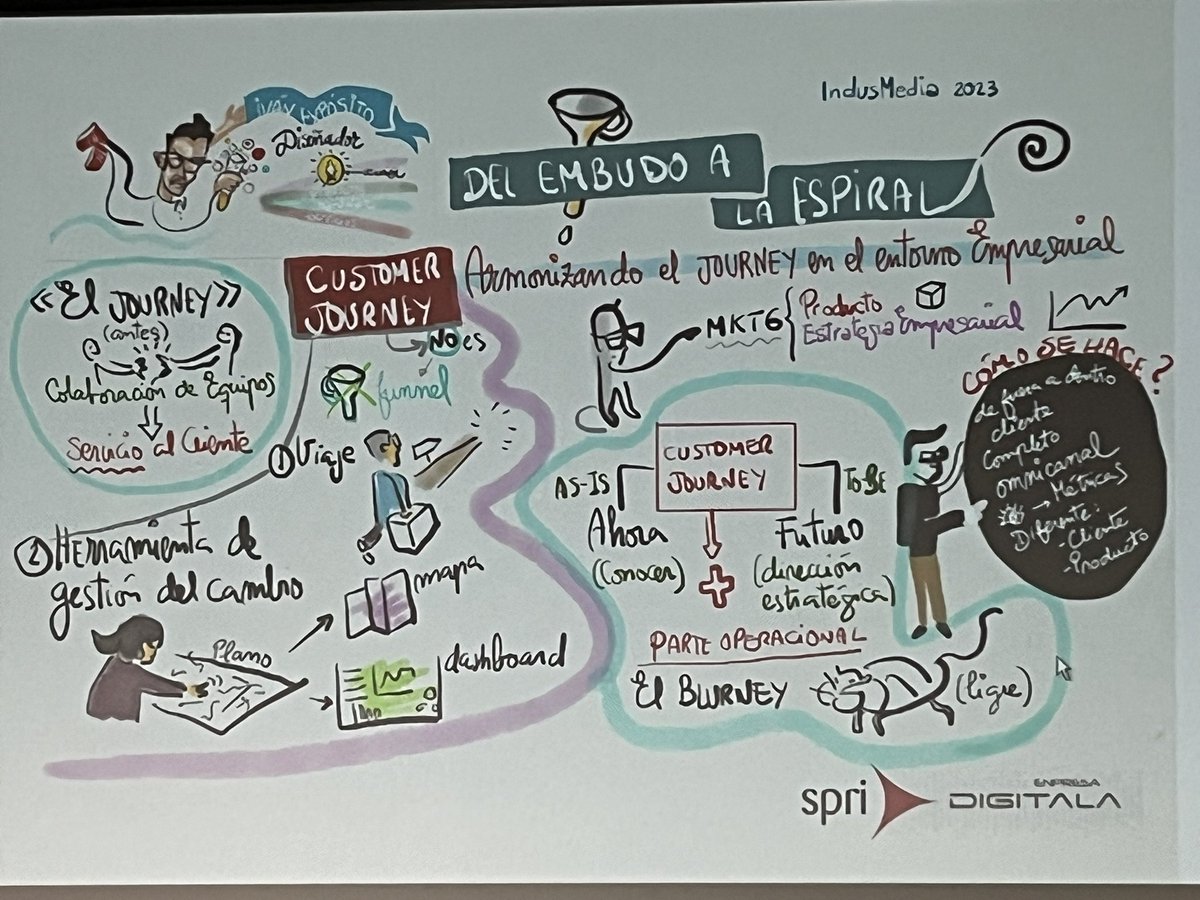 IndusMedia 2023
IVÁN EXPÓSITO
Diseñador
DEL EMBUDO A
LA ESPIRAL
Armonizando el JOURNEY en el entorno Empresarial
<<El JOURNEY>>
(antes)
Colaboración de Equipos
Servicio al Cliente
CUSTOMER
JOURNEY
NO es
funnel
① Viaje
② Herramienta de
gestión del cambio
Plano
mapa
dashboard
MKTG
Producto
Estrategia Empresarial
CUSTOMER
JOURNEY
AS-IS
Ahora
(Conocer)
To-BE
Futuro
(dirección
estratégica)
PARTE OPERACIONAL
El BLURNEY
(ligre)
CÓMO SE HACE?
de fuera a dentro
cliente
Completo
omnicanal
→ Métricas
Diferente:
-Cliente
-Producto
spri
ENPRESA
DIGITALA